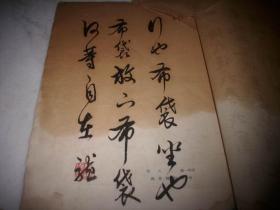 行也布袋坐也
布袋放下布袋
何等自在